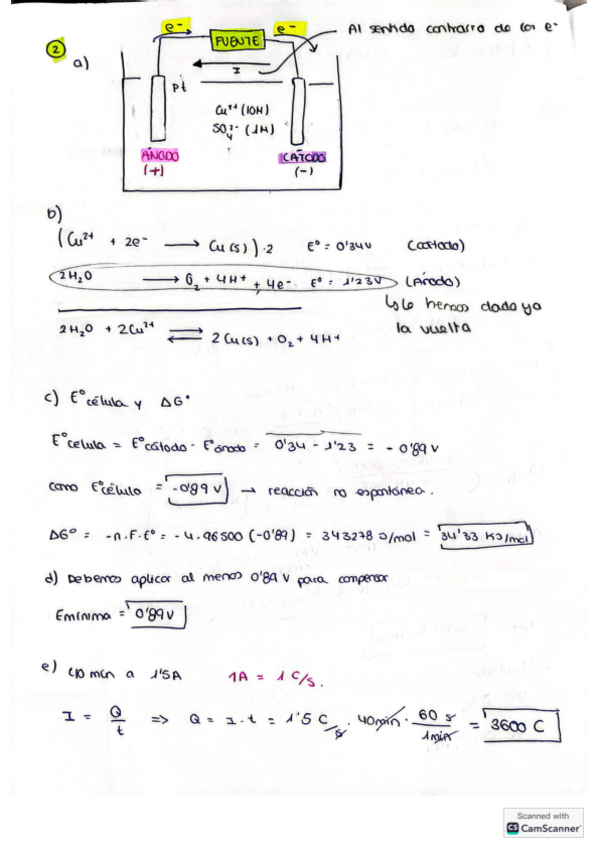 e-
FUENTE
e-
Al sentido contrario de los e-
2
a)
I
Pt
Cu²⁺ (10M)
SO₄²⁻ (1M)
ÁNODO
(+)
CÁTODO
(-)
b)
(Cu²⁺ + 2e- → Cu(s))·2 E° = 0'34V (Cátodo)
2H₂O → O₂ + 4H⁺ + 4e- E° = 1'23V (Ánodo)
↳ Le hemos dado ya
la vuelta
2H₂O + 2Cu²⁺ ⇌ 2Cu(s) + O₂ + 4H⁺
c) E°célula y ΔG°
E°celula = E°cátodo - E°ánodo = 0'34 - 1'23 = - 0'89 V
como E°célula = -0'89 V → reacción no espontánea.
ΔG° = -n.F.E° = -4.96500 (-0'89) = 343278 J/mol = 34'33 KJ/mol
d) Debemos aplicar al menos 0'89 V para compensar
Emínima = 0'89V
e) 40 min a 1'5A 1A = 1 C/s.
I = Q/t => Q = I·t = 1'5 C/s · 40min · 60 s/1min = 3600 C
Scanned with
CS CamScanner